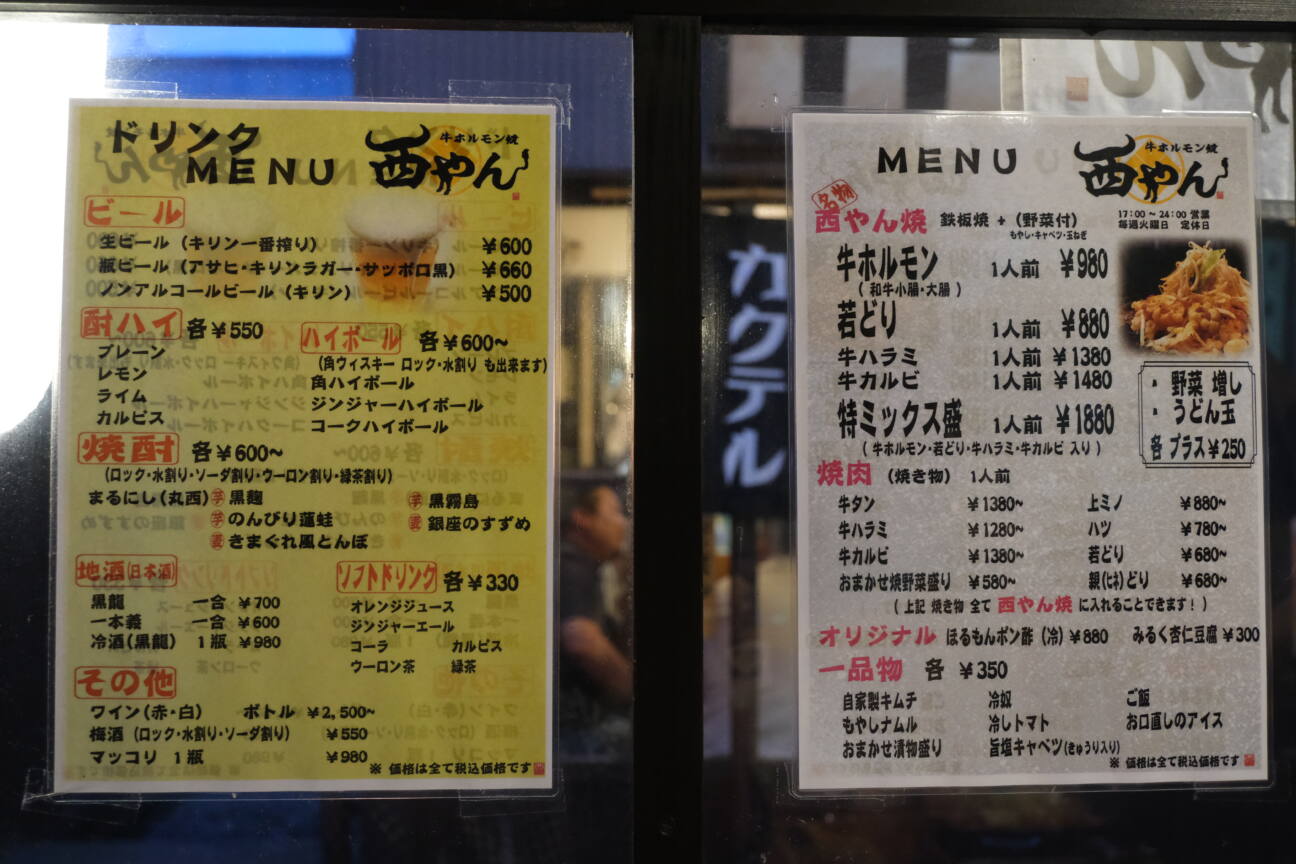 ドリンク
MENU
牛ホルモン焼
西やん
ビール
生ビール（キリン一番搾り） ￥600
瓶ビール（アサヒ・キリンラガー・サッポロ黒） ￥660
ノンアルコールビール（キリン） ￥500
酎ハイ 各￥550
プレーン
レモン
ライム
カルピス
ハイボール 各￥600~
（角ウィスキー ロック・水割り も出来ます）
角ハイボール
ジンジャーハイボール
コークハイボール
焼酎 各￥600~
（ロック・水割り・ソーダ割り・ウーロン割り・緑茶割り）
まるにし（丸西） 芋 黒麹 芋 黒霧島
芋 のんびり蓮蛙 麦 銀座のすずめ
麦 きまぐれ風とんぼ
地酒（日本酒）
黒龍 一合 ￥700
一本義 一合 ￥600
冷酒（黒龍） 1瓶 ￥980
ソフトドリンク 各￥330
オレンジジュース
ジンジャーエール
コーラ カルピス
ウーロン茶 緑茶
その他
ワイン（赤・白） ボトル ￥2,500~
梅酒（ロック・水割り・ソーダ割り） ￥550
マッコリ 1瓶 ￥980
※ 価格は全て税込価格です
カクテル
MENU
牛ホルモン焼
西やん
17:00～24:00 営業
毎週火曜日 定休日
名物
西やん焼 鉄板焼 +（野菜付）
もやし・キャベツ・玉ねぎ
牛ホルモン 1人前 ￥980
（ 和牛小腸・大腸 ）
若どり 1人前 ￥880
牛ハラミ 1人前 ￥1380
牛カルビ 1人前 ￥1480
特ミックス盛 1人前 ￥1880
（ 牛ホルモン・若どり・牛ハラミ・牛カルビ 入り ）
・ 野菜 増し
・ うどん玉
各 プラス￥250
焼肉 （焼き物） 1人前
牛タン ￥1380~ 上ミノ ￥880~
牛ハラミ ￥1280~ ハツ ￥780~
牛カルビ ￥1380~ 若どり ￥680~
おまかせ焼野菜盛り ￥580~ 親（ヒネ）どり ￥680~
（ 上記 焼き物 全て 西やん焼 に入れることできます！ ）
オリジナル ほるもんポン酢（冷）￥880 みるく杏仁豆腐 ￥300
一品物 各 ￥350
自家製キムチ 冷奴 ご飯
もやしナムル 冷しトマト お口直しのアイス
おまかせ漬物盛り 旨塩キャベツ（きゅうり入り）
※ 価格は全て税込価格です